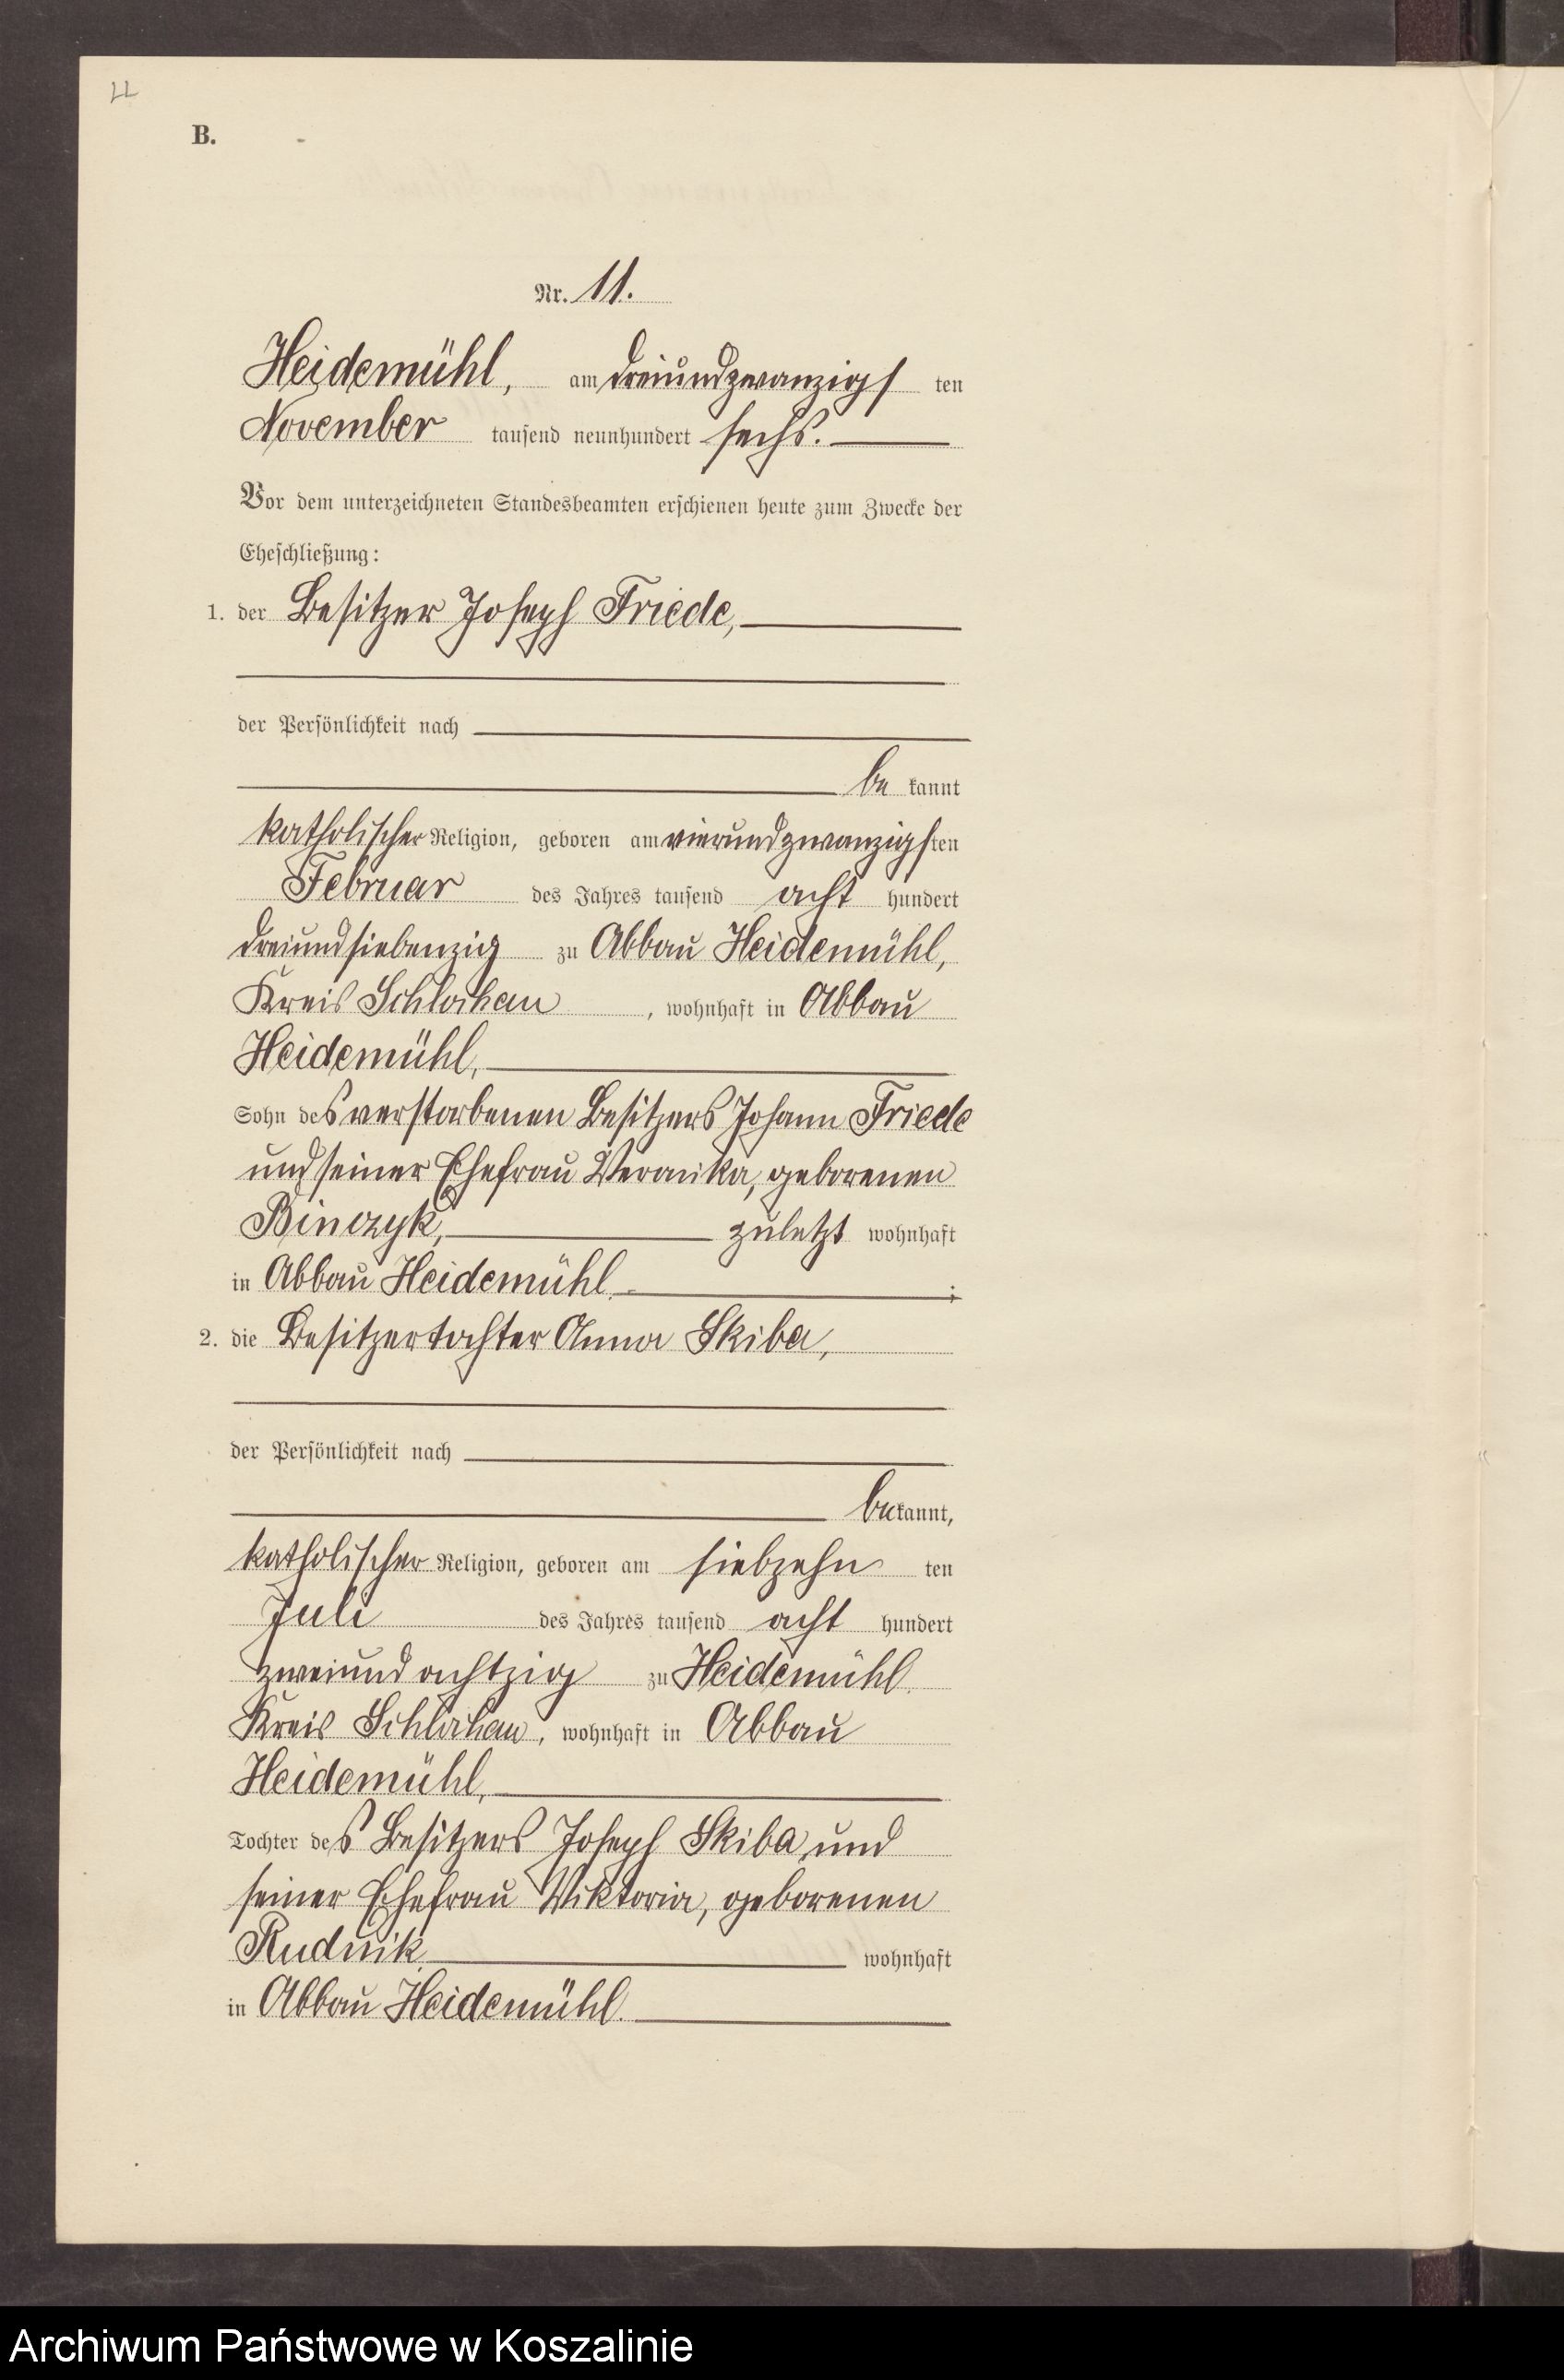 22
B.
Nr. 11.
Heidemühl, am dreiundzwanzigs ten
November tausend neunhundert sechs.
Vor dem unterzeichneten Standesbeamten erschienen heute zum Zwecke der
Eheschließung:
1. der Besitzer Joseph Friede,
der Persönlichkeit nach
be kannt
katholischer Religion, geboren am vierundzwanzigsten
Februar des Jahres tausend acht hundert
dreiundsiebenzig zu Abbau Heidemühl,
Kreis Schlochau, wohnhaft in Abbau
Heidemühl,
Sohn des verstorbenen Besitzers Johann Friede
und seiner Ehefrau Veronika, geborenen
Binczyk, zuletzt wohnhaft
in Abbau Heidemühl. ;
2. die Besitzertochter Anna Skiba,
der Persönlichkeit nach
bekannt,
katholischer Religion, geboren am siebzehn ten
Juli des Jahres tausend acht hundert
zweiundachtzig zu Heidemühl,
Kreis Schlochau, wohnhaft in Abbau
Heidemühl,
Tochter des Besitzers Joseph Skiba und
seiner Ehefrau Viktoria, geborenen
Rudnik wohnhaft
in Abbau Heidemühl.
Archiwum Państwowe w Koszalinie